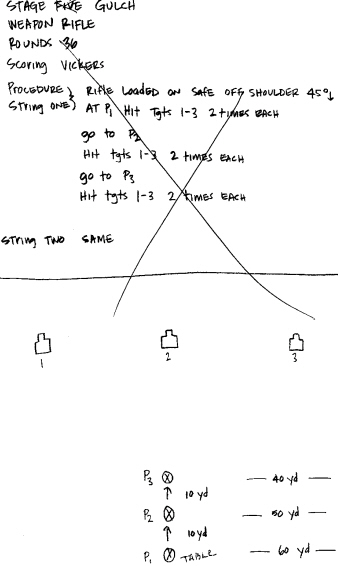 STAGE FIVE GULCH
WEAPON RIFLE
ROUNDS 36
Scoring Vickers
Procedure } Rifle loaded on safe off shoulder 45°↓
String one } AT P1 Hit Tgts 1-3 2 times each
go to P2
Hit tgts 1-3 2 times each
go to P3
Hit tgts 1-3 2 times each
String two same
1 2 3
P3 40 yd
↑ 10 yd
P2 50 yd
↑ 10 yd
P1 TABLE 60 yd